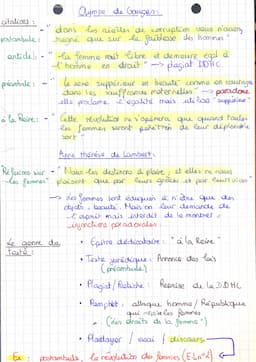 Olympe de Gouges:
citations:
postambule: - "dans les siècles de corruption vous n'avez régné que sur la faiblesse des hommes"
article 1: - "La femme naît libre et demeure égal à l'homme en droit" → plagiat DDHC
préambule: - "le sexe supérieur en beauté comme en courage dans les souffrances maternelles" → paradoxe
elle proclame l'égalité mais utilise "supérieur"
à la Reine: - "Cette révolution ne s'opérera que quand toutes les femmes seront pénétrées de leur déplorable sort"
Anne Thérèse de Lambert:
Réflexions sur les femmes" - "Nous les destinons à plaire, et elles ne nous plaisent que par leurs grâces et par leurs vices"
→ les femmes sont éduquées à n'être que des objets de beauté. Mais on leur demande de l'esprit mais interdit de le montrer,
injonctions paradoxales.
Le genre du texte:
• Épître dédicatoire: "à la Reine"
• Texte juridique: Annonce des lois (préambule)
• Plagiat/Pastiche: Reprise de la DDHC
• Pamphlet: attaque homme/République qui les femmes
("des droits de la femme")
• Plaidoyer / essai / discours
Ex: postambule, la révolution des femmes (EL n°2)